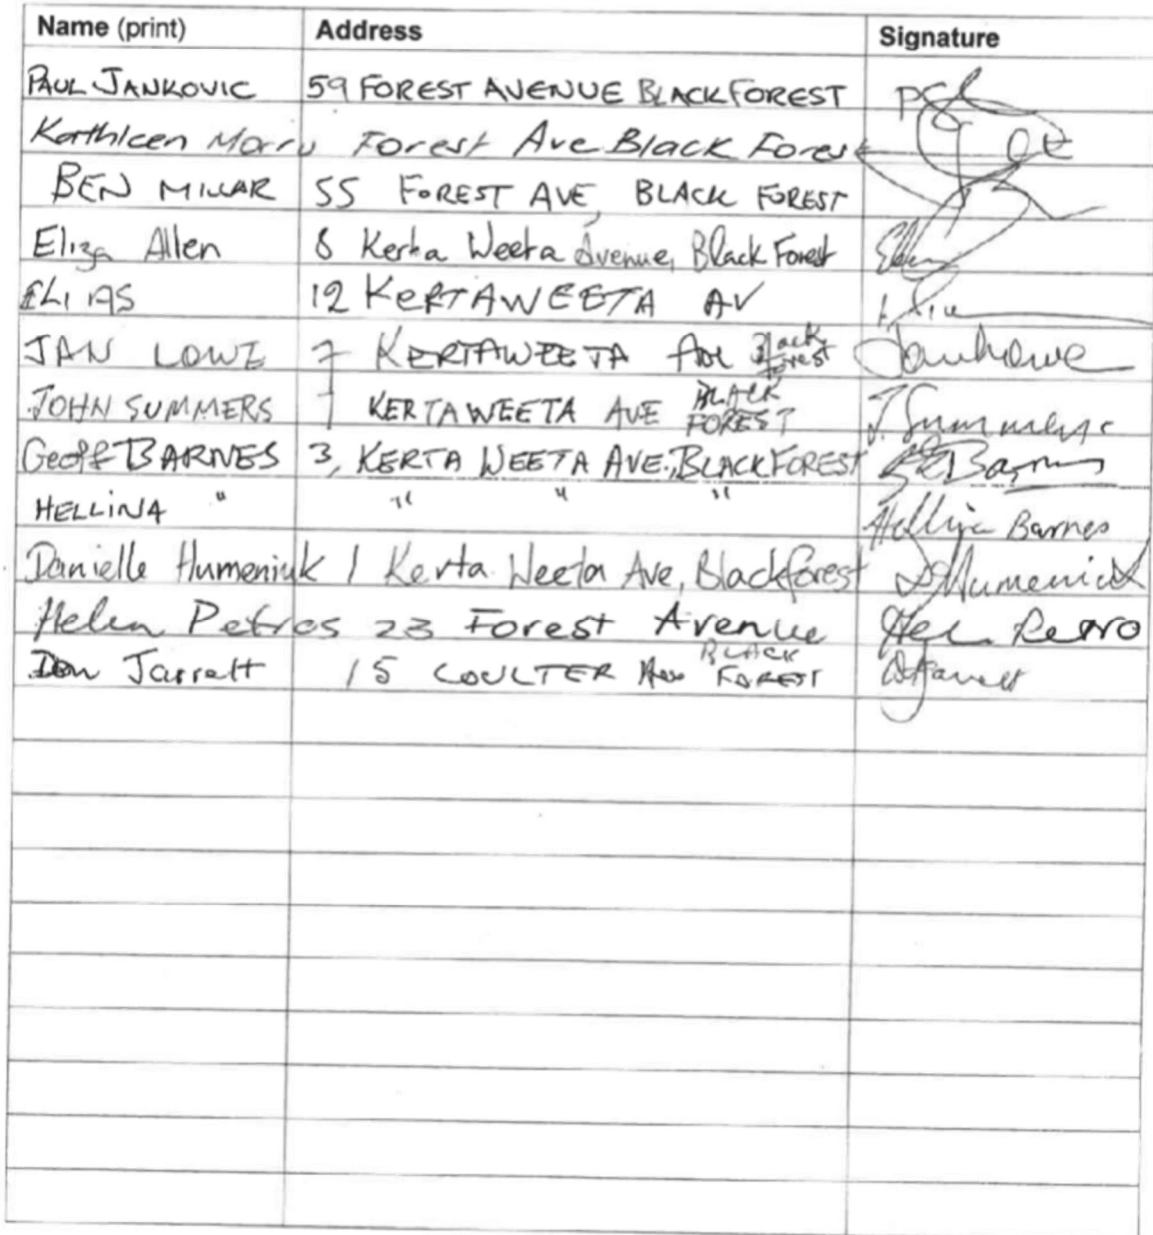 Name (print) Address Signature
PAUL JANKOVIC 59 FOREST AVENUE BLACK FOREST
Kathleen Morris Forest Ave Black Forest
BEN MILLAR 55 FOREST AVE, BLACK FOREST
Eliza Allen 8 Kerta Weeta Avenue, Black Forest
ELIAS 12 KERTAWEETA AV
JAN LOWE 7 KERTAWEETA Ave Black Forest Jan Lowe
JOHN SUMMERS 7 KERTAWEETA AVE BLACK FOREST J. Summers
Geoff BARNES 3, KERTA WEETA AVE., BLACK FOREST Barnes
HELLINA " " " " Hellina Barnes
Danielle Humeniuk 1 Kerta Weeta Ave, Blackforest D Humeniuk
Helen Petros 23 Forest Avenue
Don Jarrett 15 COULTER Ave BLACK FOREST D Jarrett